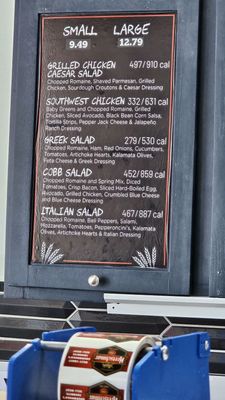 SMALL LARGE
9.49 12.79
GRILLED CHICKEN 497/910 cal
CAESAR SALAD
Chopped Romaine, Shaved Parmesan, Grilled
Chicken, Sourdough Croutons & Caesar Dressing
SOUTHWEST CHICKEN 332/631 cal
Baby Greens and Chopped Romaine, Grilled
Chicken, Sliced Avocado, Black Bean Corn Salsa,
Tortilla Strips, Pepper Jack Cheese & Jalapeño
Ranch Dressing
GREEK SALAD 279/530 cal
Chopped Romaine, Ham, Red Onions, Cucumbers,
Tomatoes, Artichoke Hearts, Kalamata Olives,
Feta Cheese & Greek Dressing
COBB SALAD 452/859 cal
Chopped Romaine and Spring Mix, Diced
Tomatoes, Crisp Bacon, Sliced Hard-Boiled Egg,
Avocado, Grilled Chicken, Crumbled Blue Cheese
and Blue Cheese Dressing
ITALIAN SALAD 467/887 cal
Chopped Romaine, Bell Peppers, Salami,
Mozzarella, Tomatoes, Pepperoncini's, Kalamata
Olives, Artichoke Hearts & Italian Dressing